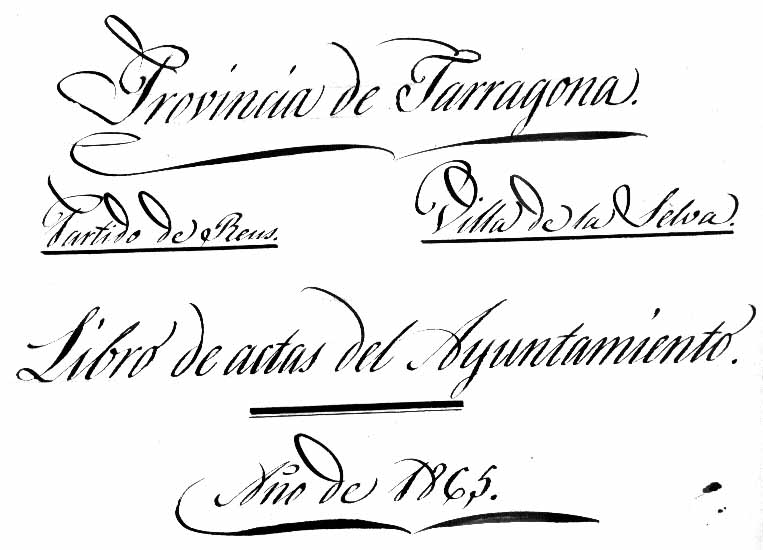 Provincia de Tarragona.
Partido de Reus. Villa de la Selva.
Libro de actas del Ayuntamiento.
Año de 1865.